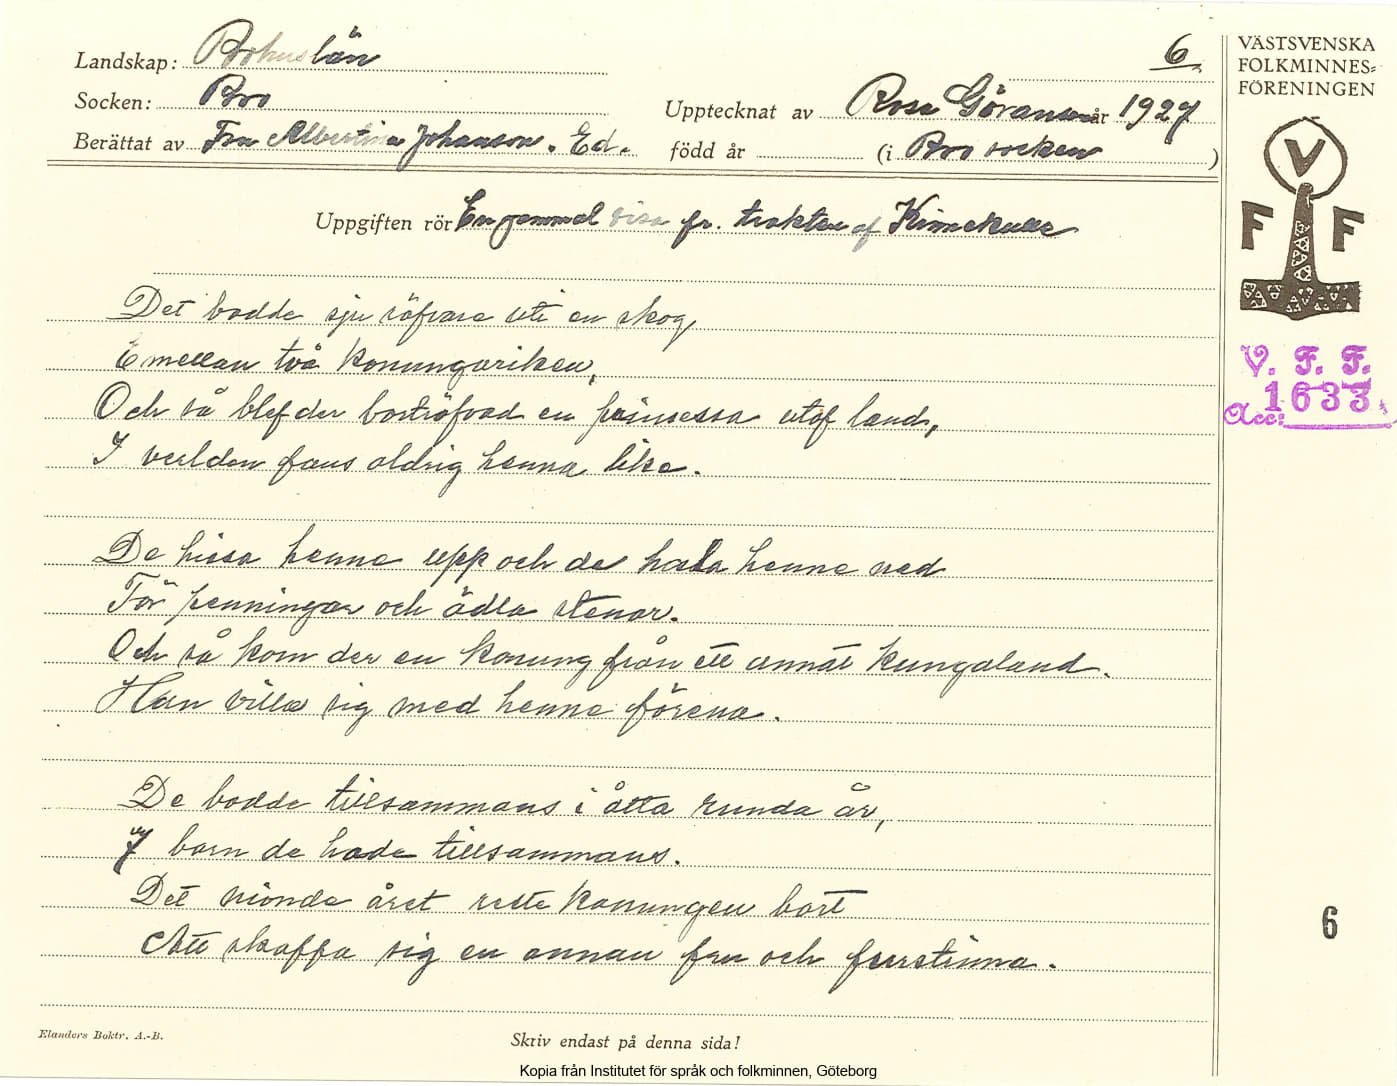 Landskap: Bohuslän
6
Socken: Bro
Upptecknat av Rosa Göranson år 1927
Berättat av Fru Albertina Johanson. Ed.
född år (i Bro socken )
Uppgiften rör En gammal visa fr. trakten af Kinnekulle
Det bodde sju röfvare uti en skog
Emellan två konungariken,
Och så blef der bortröfvad en prinsessa utaf land,
I verlden fans aldrig henna like.
De hissa henne upp och de hala henne ned
För penningar och ädla stenar.
Och så kom der en konung från ett annat kungaland.
Han ville sig med henne förena.
De bodde tillsammans i åtta runda år,
7 barn de hade tillsammans.
Det nionde året reste konungen bort
Att skaffa sig en annan fru och furstinna.
Elanders Boktr. A.-B.
Skriv endast på denna sida!
VÄSTSVENSKA
FOLKMINNES-
FÖRENINGEN
V
F F
V. F. F.
Acc: 1633
6
Kopia från Institutet för språk och folkminnen, Göteborg